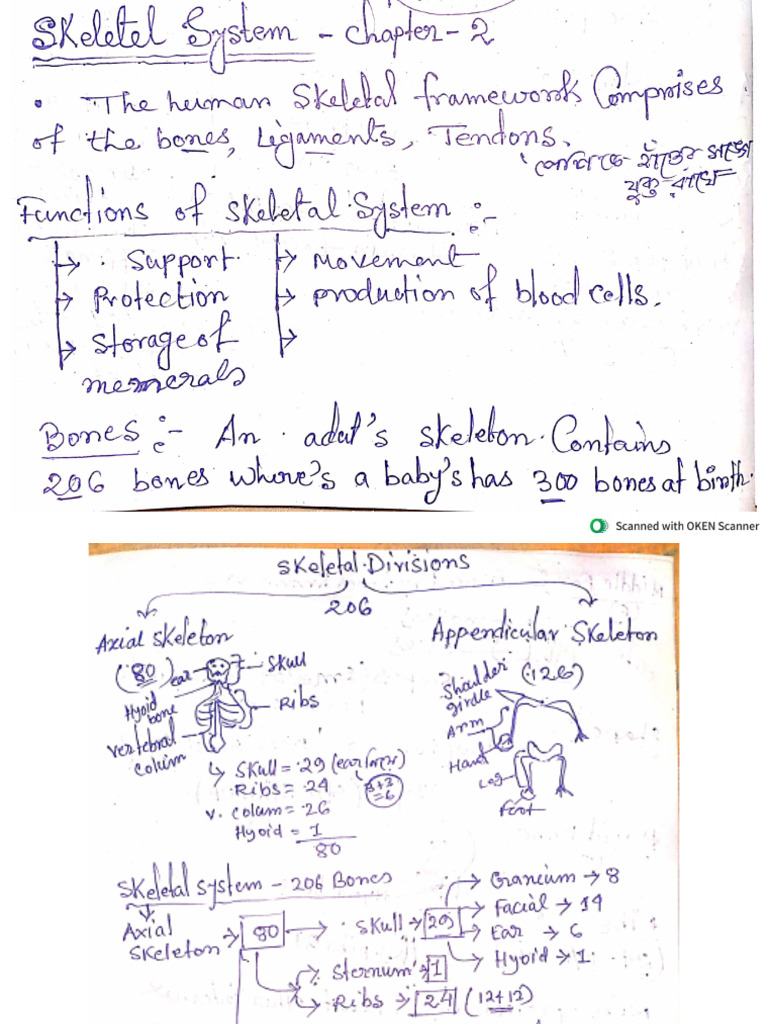 Skeletel System - Chapter - 2
• The human Skeletal framework Comprises
of the bones, Ligaments, Tendons.
যুক্ত রাখে
Functions of Skeletal System :-
→ Support
→ Movement
→ Protection
→ production of blood cells.
→ Storage of
memerals
→
Bones :- An adut's skeleton Contains
206 bones where's a baby's has 300 bones at birth.
Scanned with OKEN Scanner
Skeletal Divisions
206
Axial Skeleton
(80)
Appendicular Skeleton
(126)
ear
Skull
Hyoid
bone
Ribs
vertebral
colum
Shoulder
girdle
Arm
Hand
Leg
Foot
Skull = 29
Ribs = 24
3+3
=6
v. Colum = 26
Hyoid = 1
80
Skeletal system - 206 Bones
Axial
Skeleton → 80 → Skull → 29
→ Cranium → 8
→ Facial → 14
→ Ear → 6
→ Hyoid → 1
→ Sternum → 1
→ Ribs → 24 (12+12)